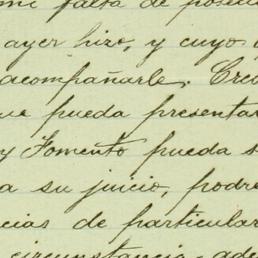 mi falta de posesi
ayer hizo, y cuyo
acompañarle. Creo
que pueda presentar
y Fomento pueda s
a su juicio, podre
cias de particular
circunstancia ade